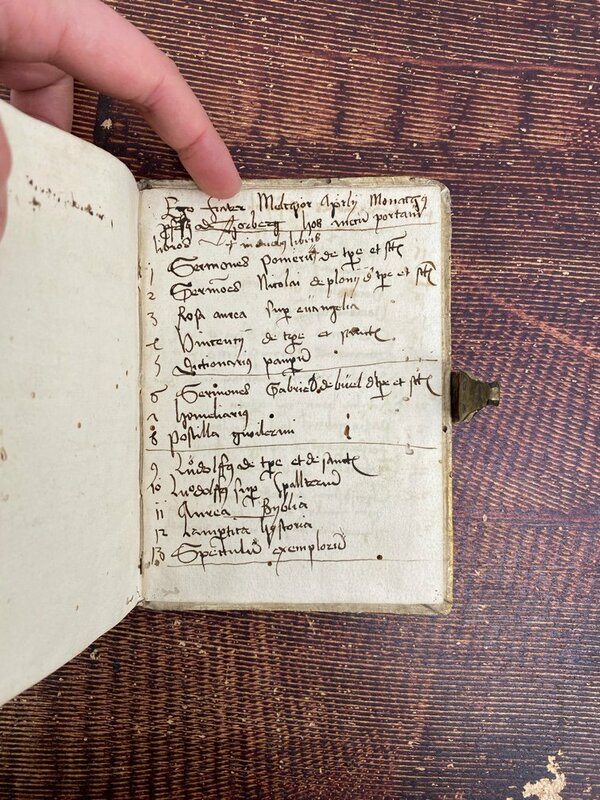 Ego frater Melchior Monachus
de hos mecum portavi
libros in duobus libris
1 Sermones Pomerij de tpe et sctis
2 Sermões Nicolai de plonij d tpe et sctis
3 Rosa aurea sup euangelia
4 Vincentij de tpe et sanctis
5 Dictionariũ paupũ
6 Sermones Gabrielis de biel d tpe et sctis
7 homeliarius
8 Postilla guilermi
9 Ludolffus de tpe et de sanctis
10 Ludolffus sup psallteriũ
11 Aurea Byblia
12 hystoria
13 Speculũ exemplorũ